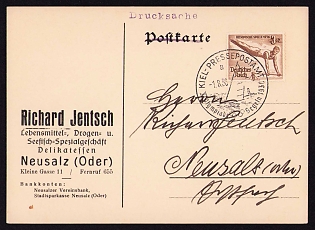 Drucksache
Postkarte
Deutsches
Reich
KIEL-PRESSEPOSTAMT
Richard Jentsch
Lebensmittel-, Drogen- u.
Seefisch-Spezialgeschäft
Delikatessen
Neusalz (Oder)
Kleine Gasse 11 / Fernruf 655
Bankkonten:
Neusalzer Vereinsbank,
Stadtsparkasse Neusalz (Oder)
Herrn
Richard Jentsch
Neusalz (Oder)
Postfach